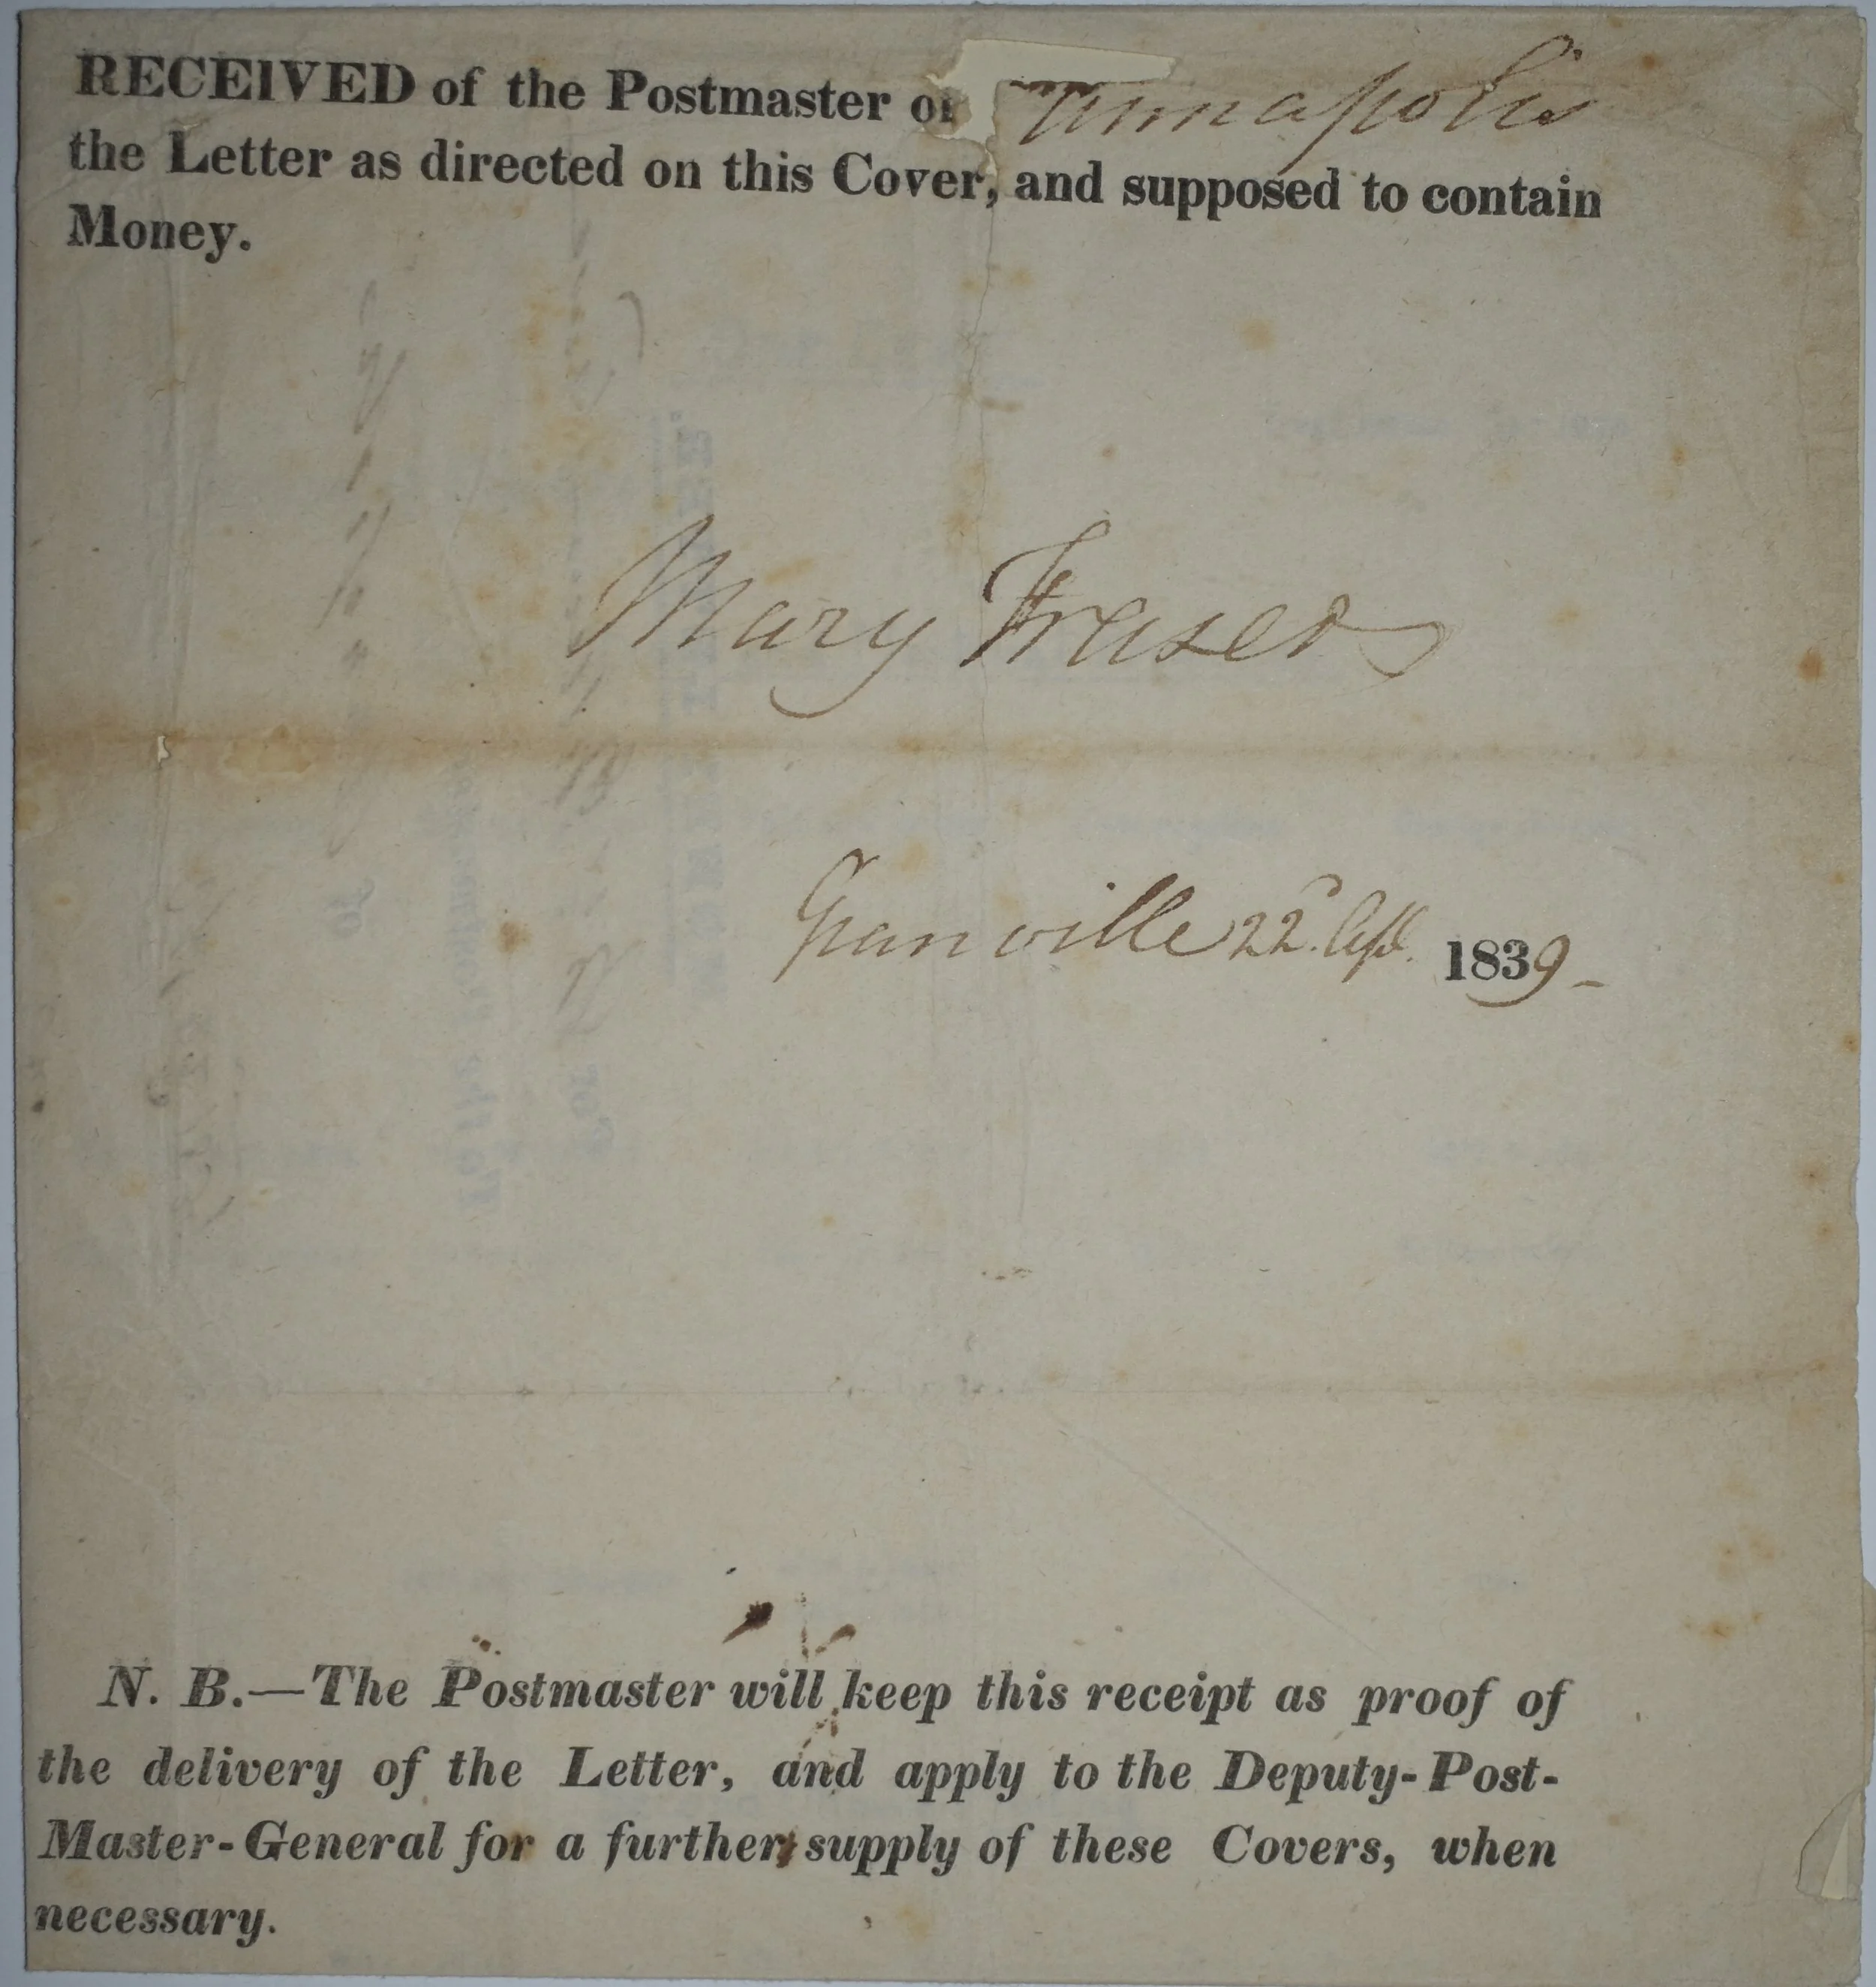 RECEIVED of the Postmaster of Annapolis
the Letter as directed on this Cover, and supposed to contain
Money.
Mary Fraser
Granville 22d. Apl. 1839-
N. B.—The Postmaster will keep this receipt as proof of
the delivery of the Letter, and apply to the Deputy-Post-
Master-General for a further supply of these Covers, when
necessary.